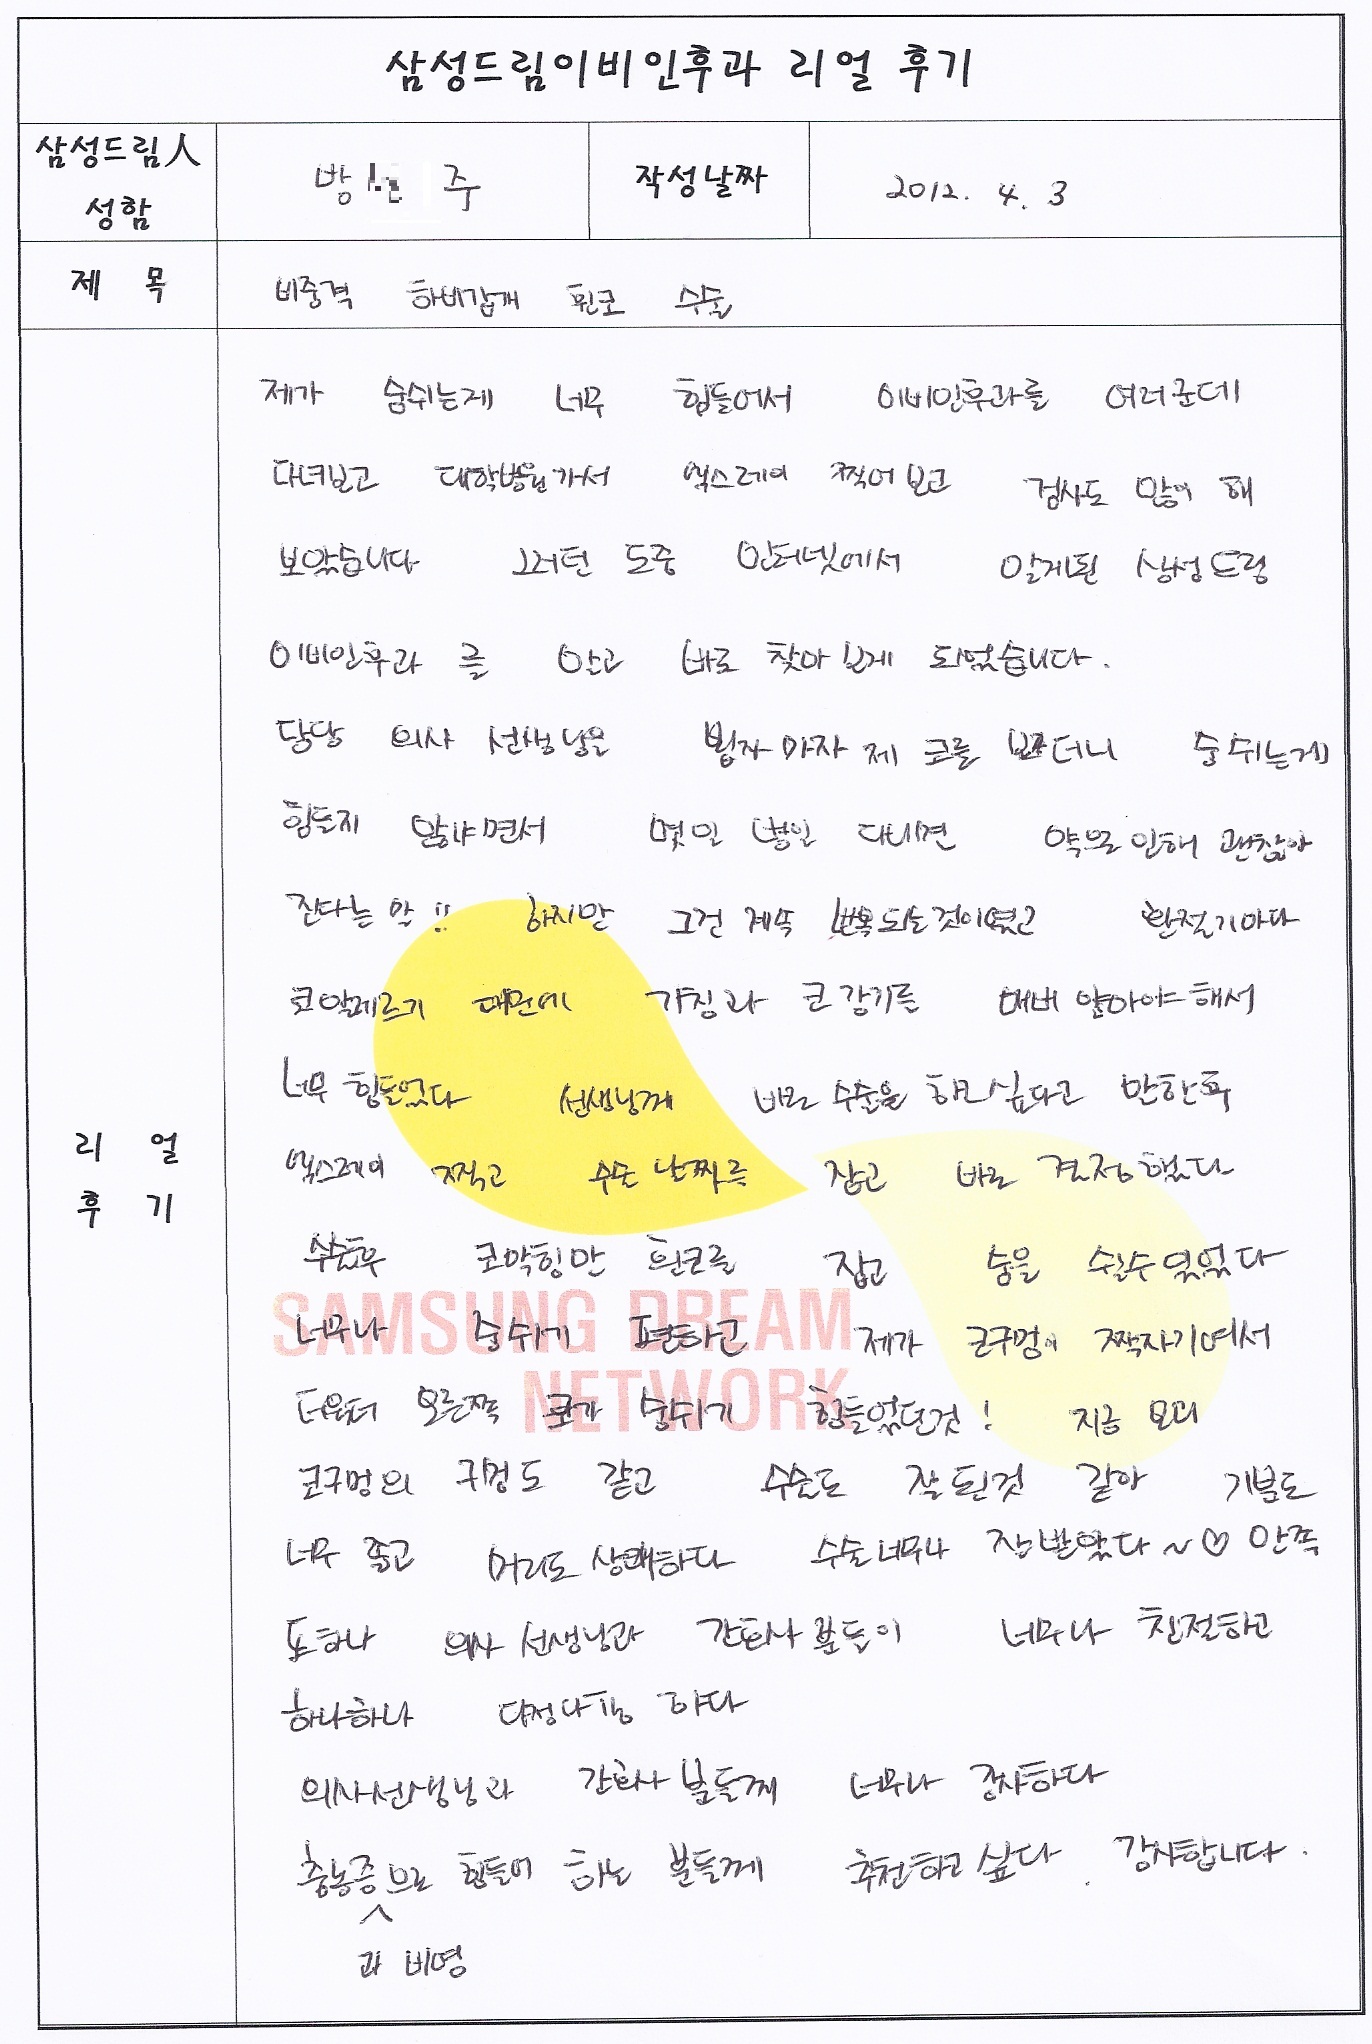 삼성드림이비인후과 리얼 후기
삼성드림人
성함
방 주
작성날짜
2012. 4. 3
제 목
비중격 하비갑개 휜코 수술
리 얼
후 기
제가 숨쉬는게 너무 힘들어서 이비인후과를 여러군데
다녀보고 대학병원가서 엑스레이 찍어보고 검사도 많이 해
보았습니다 그러던 도중 인터넷에서 알게된 삼성드림
이비인후과 를 알고 바로 찾아 보게 되었습니다.
담당 의사 선생님은 보자 마자 제 코를 보더니 숨쉬는게
힘들지 않냐면서 몇일 병원 다니면 약으로 인해 괜찮아
진다는 말!! 하지만 그건 계속 반복되는것이였고 환절기마다
코알레르기 때문에 기침과 코감기를 매번 앓아야해서
너무 힘들었다 선생님께 바로 수술을 하고싶다고 말한후
엑스레이 찍고 수술 날짜를 잡고 바로 결정했다
수술후 코막힘만 휜코를 잡고 숨을 쉴수있었다
너무나 숨쉬기 편하고 제가 코구멍이 짝짝이여서
더욱더 오른쪽 코가 숨쉬기 힘들었던것! 지금 모두
코구멍의 구멍도 같고 수술도 잘된것 같아 기분도
너무 좋고 머리도 상쾌하다 수술너무나 잘받았다~♡ 안쪽
또하나 의사 선생님과 간호사분들이 너무나 친절하고
하나하나 다정다감 하다
의사선생님과 간호사 분들께 너무나 감사하다
축농증으로 힘들어 하는 분들께 추천하고 싶다. 감사합니다.
^
과 비염
SAMSUNG DREAM
NETWORK